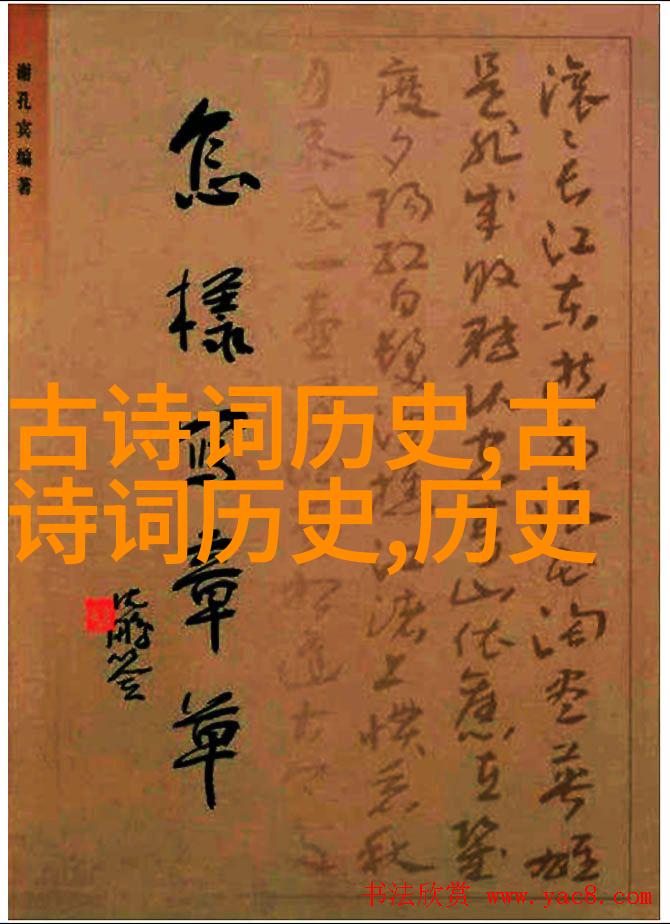 古诗词历史,古
诗词历史,历史
滚〻长江东逝水浪花淘尽英雄
是非成败转头空青山依旧在几
度夕阳红白发渔樵江渚上惯看秋
月春风一壶
相逢古今多
怎样写章草
沈鹏签
谢孔宾编著
书法欣赏 www.yac8.com